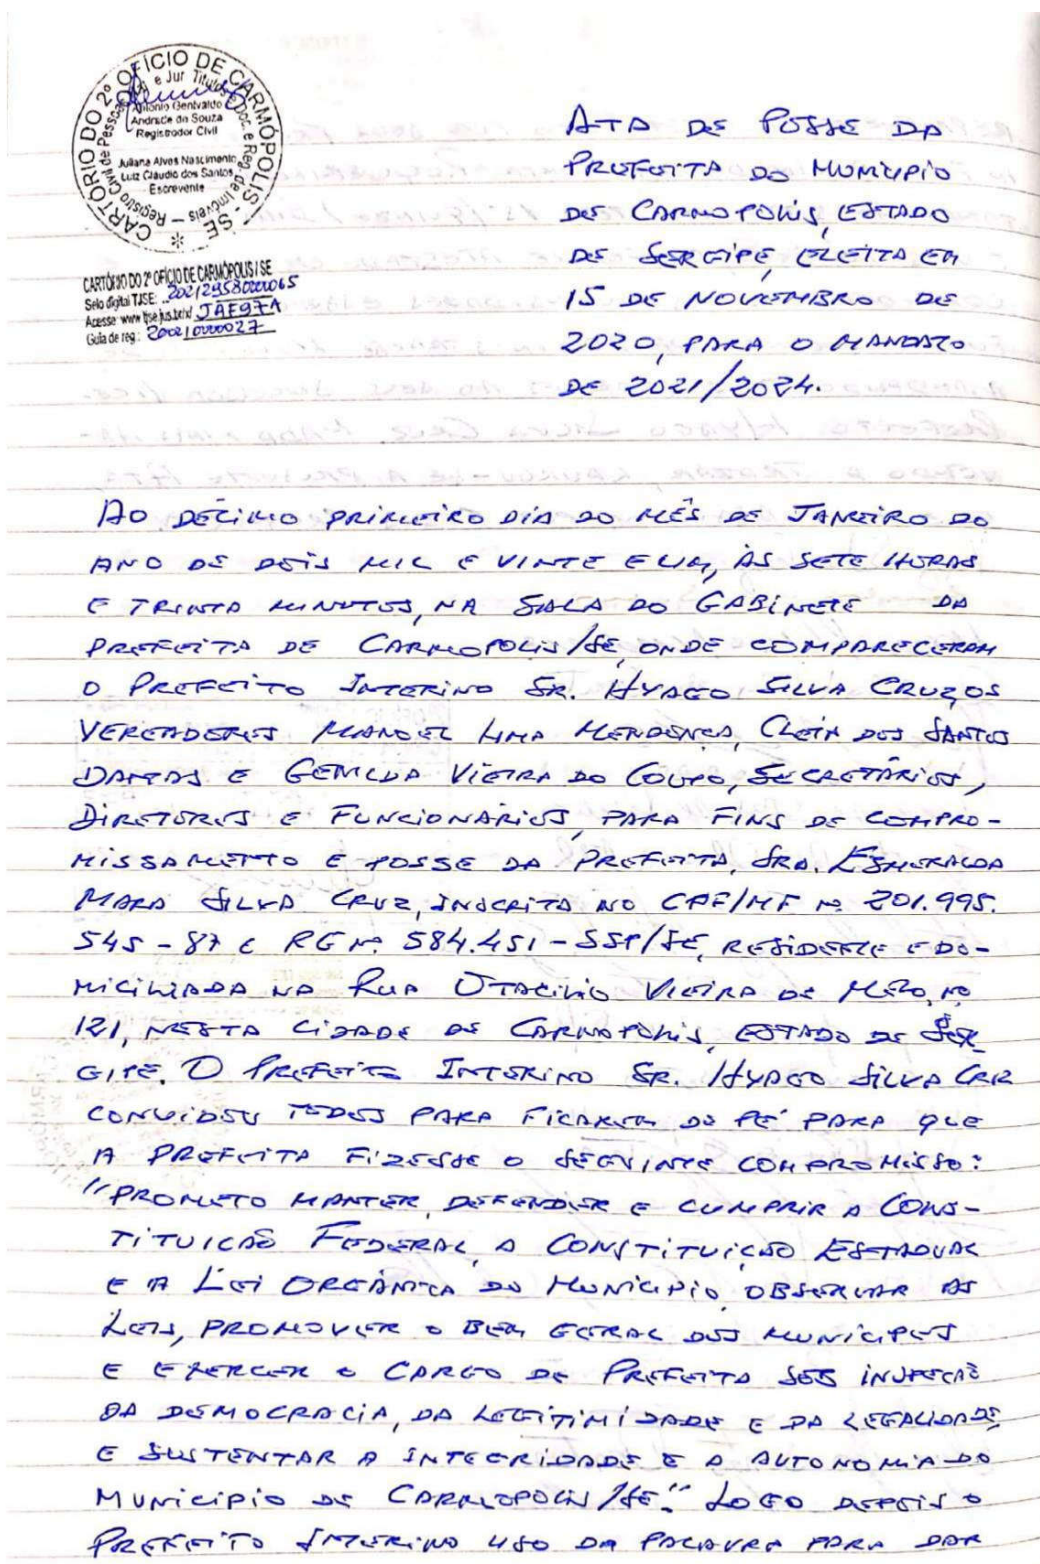 CARTÓRIO DO 2º OFÍCIO DE CARMÓPOLIS
Antonio Genivaldo
Andrade de Souza
Registrador Civil
Juliana Alves Nascimento
Luiz Cláudio dos Santos
Escrevente
CARTÓRIO DO 2º OFÍCIO DE CARMÓPOLIS / SE
Selo digital TJSE: 202129580000065
Acesse: www.tjse.jus.br/x/ JAE97A
Guia de reg.:
ATA DE POSSE DA
PREFEITA DO MUNICIPIO
DE CARMOPOLIS, ESTADO
DE SERGIPE, ELEITA EM
15 DE NOVEMBRO DE
2020, PARA O MANDATO
DE 2021/2024.
AO DÉCIMO PRIMEIRO DIA DO MÊS DE JANEIRO DO
ANO DE DOIS MIL E VINTE E UM, ÀS SETE HORAS
E TRINTA MINUTOS, NA SALA DO GABINETE DA
PREFEITA DE CARMOPOLIS/SE, ONDE COMPARECERAM
O PREFEITO INTERINO SR. HYAGO SILVA CRUZ, OS
VEREADORES MANOEL LIMA MENDONÇA, CLEIA DOS SANTOS
DANTAS E GENILDA VIEIRA DO COUTO, SECRETÁRIOS,
DIRETORES E FUNCIONÁRIOS, PARA FINS DE COMPRO-
MISSAMENTO E POSSE DA PREFEITA, SRA. ESMERALDA
MARA SILVA CRUZ, INSCRITA NO CPF/MF Nº 201.995.
545-87 E RG Nº 584.451-SSP/SE, RESIDENTE E DO-
MICILIADA NA RUA OTACILIO VIEIRA DE MELO, Nº
121, NESTA CIDADE DE CARMOPOLIS, ESTADO DE SER
GIPE. O PREFEITO INTERINO SR. HYAGO SILVA CRUZ
CONVIDOU TODOS PARA FICAREM DE PÉ PARA QUE
A PREFEITA FIZESSE O SEGUINTE COMPROMISSO:
"PROMETO MANTER, DEFENDER E CUMPRIR A CONS-
TITUICÃO FEDERAL, A CONSTITUICÃO ESTADUAL
E A LEI ORGÂNICA DO MUNICIPIO, OBSERVAR AS
LEIS, PROMOVER O BEM GERAL DOS MUNICIPES
E EXERCER O CARGO DE PREFEITA SOB INSPERCÃO
DA DEMOCRACIA, DA LEGITIMIDADE E DA LEGALIDADE,
E SUSTENTAR A INTEGRIDADE E A AUTONOMIA DO
MUNICIPIO DE CARMOPOLIS/SE". LOGO DEPOIS O
PREFEITO INTERINO USO DA PALAVRA PARA DAR